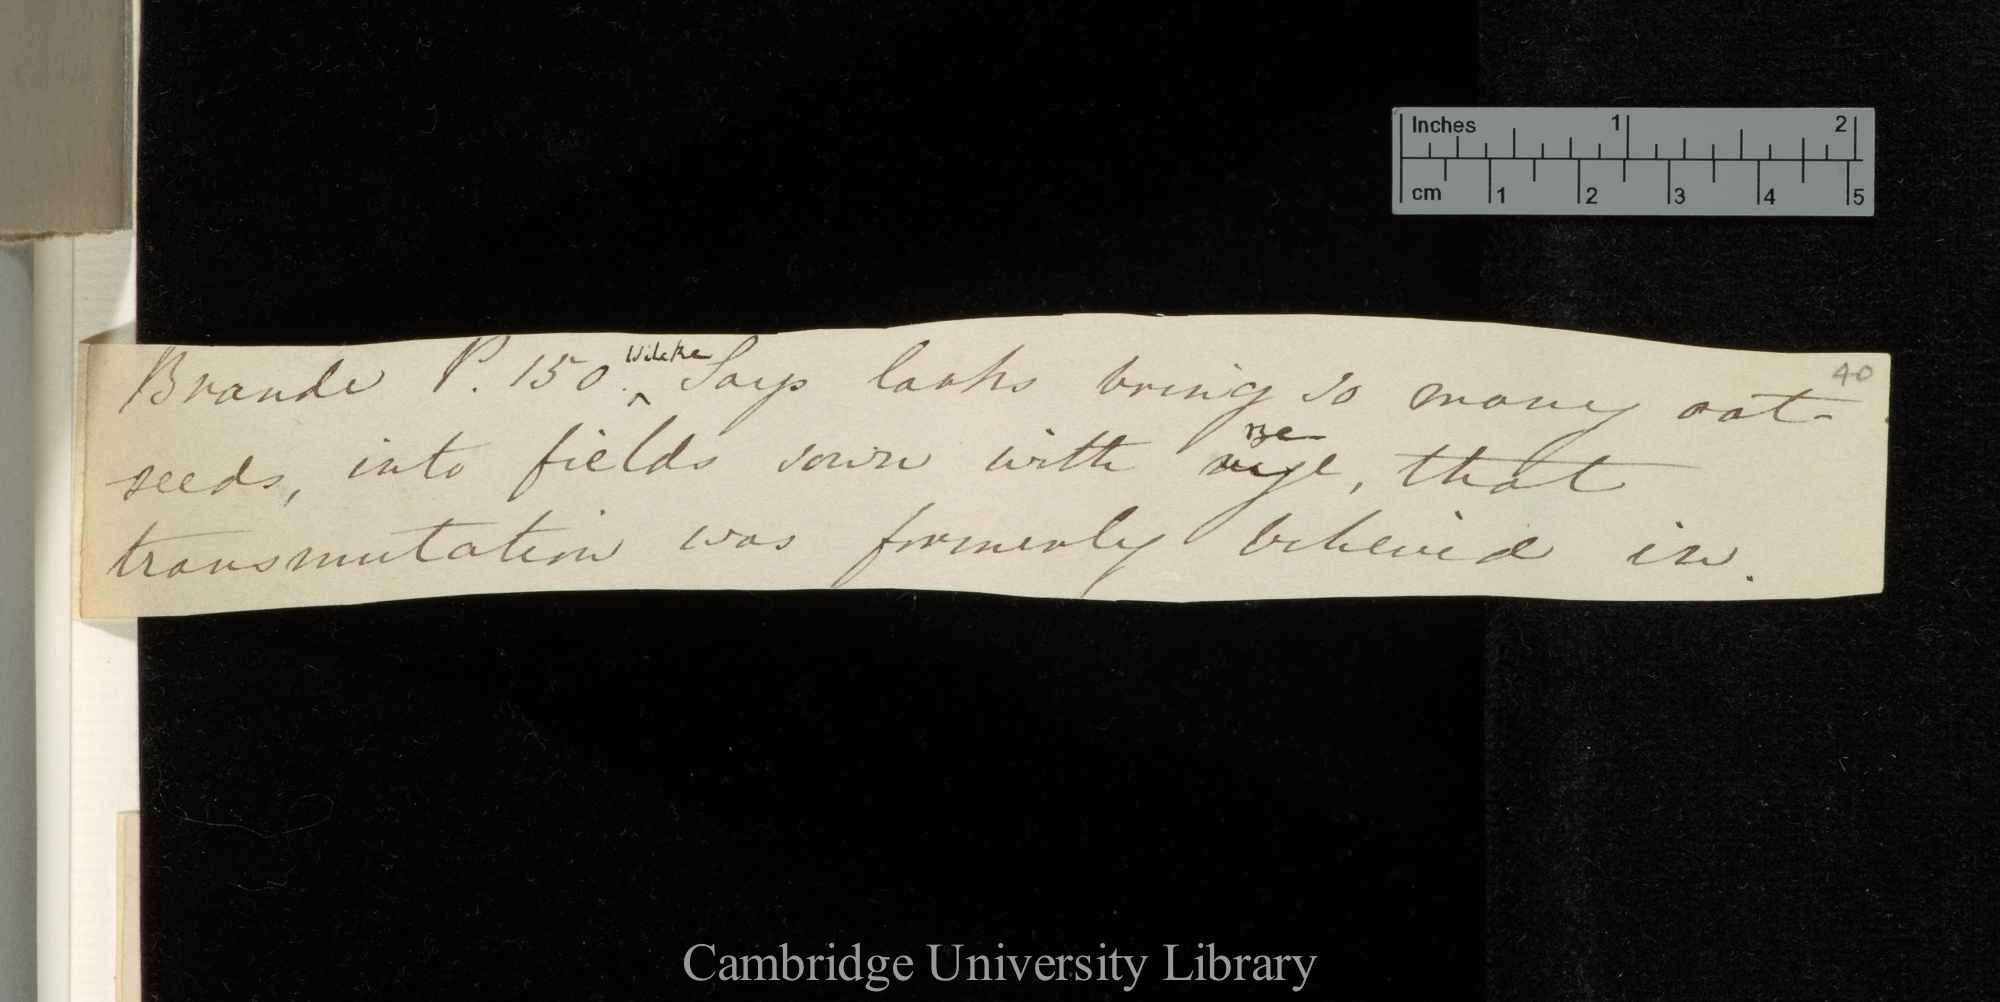 40
Brande P. 150. ^Wilcke Says larks bring so many oat-
seeds, into fields sown with rye, that
transmutation was formerly believed in.
Inches 1 2
cm 1 2 3 4 5
Cambridge University Library